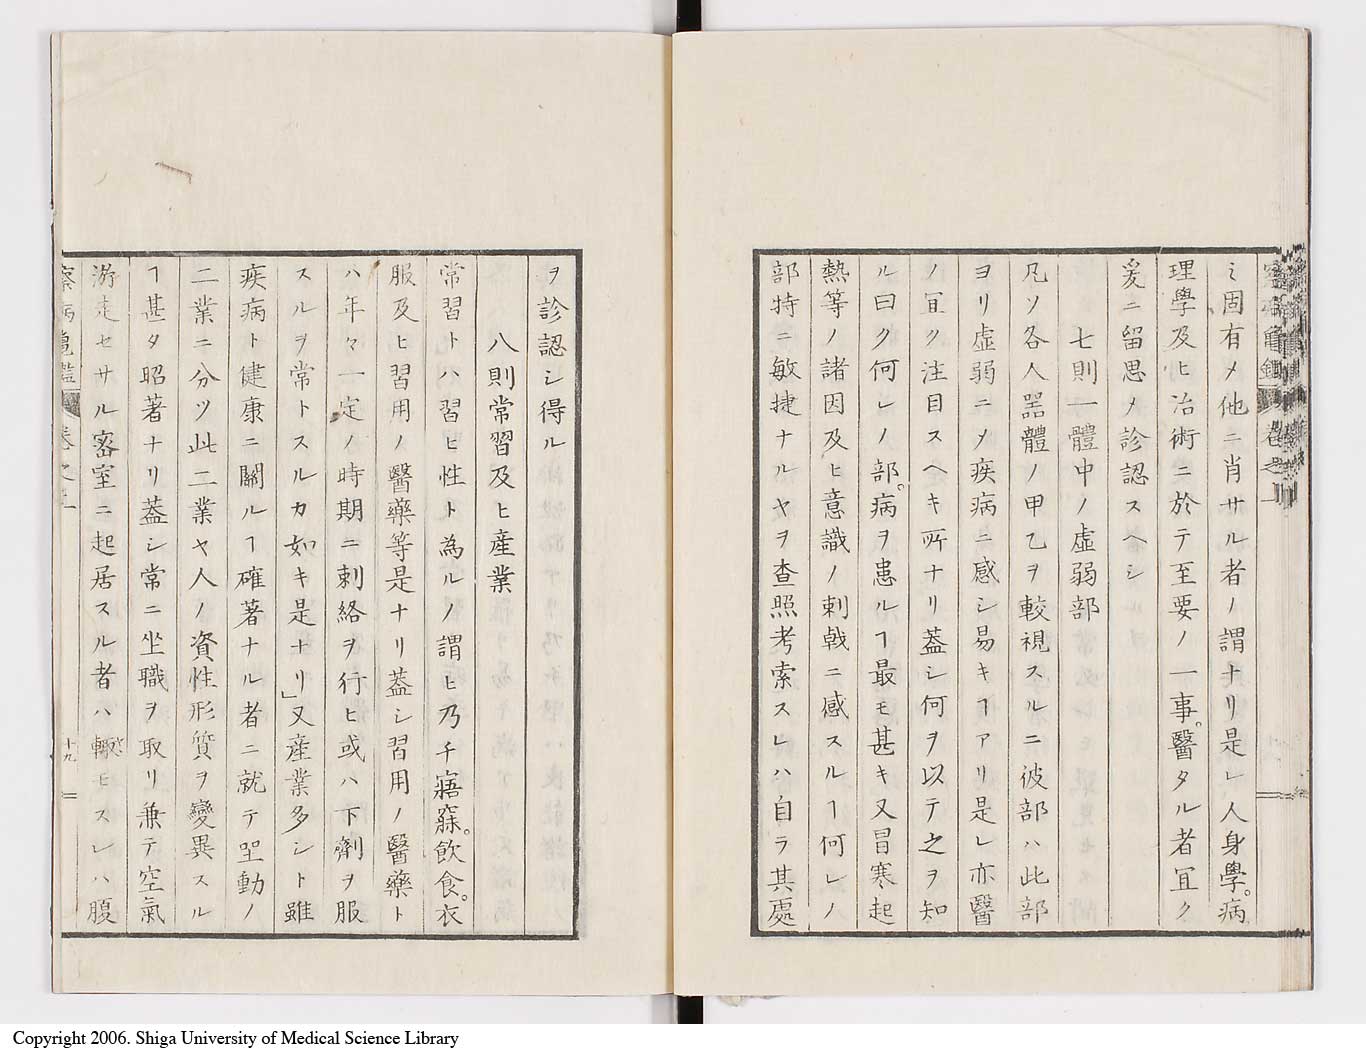 ミ固有〆他ニ肖サル者ノ謂ナリ是レ人身學。病
理學及ヒ治術ニ於テ至要ノ一事。醫タル者宜ク
爰ニ留思〆診認スヘシ
七則一體中ノ虚弱部
凡ソ各人噐體ノ甲乙ヲ較視スルニ彼部ハ此部
ヨリ虚弱ニ〆疾病ニ感シ易キヿアリ是レ亦醫
ノ宜ク注目スヘキ所ナリ蓋シ何ヲ以テ之ヲ知
ル曰ク何レノ部。病ヲ患ルヿ最モ甚キ又冒寒起
熱等ノ諸因及ヒ意識ノ刺戟ニ感スルヿ何レノ
部特ニ敏捷ナルヤヲ査照考索スレハ自ラ其處
ヲ診認シ得ル
八則常習及ヒ産業
常習トハ習ヒ性ト為ルノ謂ヒ乃チ寤寐。飲食。衣
服及ヒ習用ノ醫藥等是ナリ蓋シ習用ノ醫藥ト
ハ年々一定ノ時期ニ刺絡ヲ行ヒ或ハ下劑ヲ服
スルヲ常トスルカ如キ是ナリ」又産業多シト雖
疾病ト健康ニ關ルヿ確著ナル者ニ就テ坐動ノ
二業ニ分ツ此二業ヤ人ノ資性形質ヲ變異スル
ヿ甚タ昭著ナリ蓋シ常ニ坐職ヲ取リ兼テ空氣
游走セサル密室ニ起居スル者ハ輙モスレハ腹
察病亀鑑 卷之上 十九